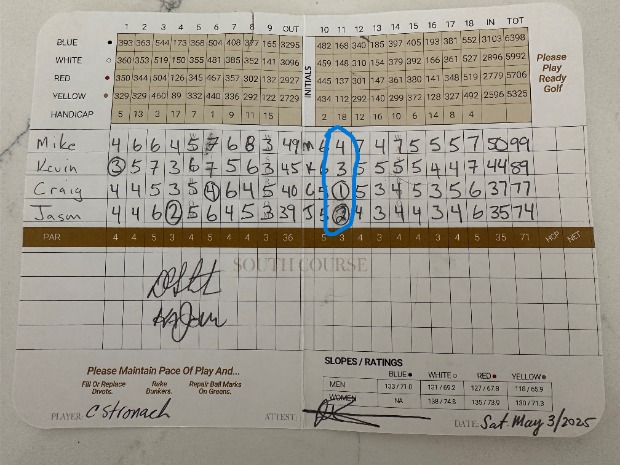 1 2 3 4 5 6 7 8 9 OUT INITIALS 10 11 12 13 14 15 16 17 18 IN TOT
BLUE 393 363 544 173 358 504 408 377 165 3295 482 168 340 185 397 405 193 381 552 3103 6398
WHITE 360 353 519 150 355 481 385 352 141 3096 459 148 310 154 379 392 166 361 527 2896 5992
RED 350 344 504 126 345 467 357 302 132 2927 445 137 301 147 361 380 141 348 519 2779 5706
YELLOW 329 329 460 89 332 440 336 292 122 2729 434 112 292 140 299 372 128 327 492 2596 5325
HANDICAP 5 13 3 17 7 1 9 11 15 2 18 12 10 6 16 14 8 4
Please
Play
Ready
Golf
Mike 4 6 6 4 5 7 6 8 3 49 M 6 4 7 4 7 5 5 5 7 50 99
Kevin 3 5 7 3 6 7 5 6 3 45 K 6 3 5 5 5 5 4 4 7 44 89
Craig 4 4 5 3 5 4 6 4 5 40 C 5 1 5 3 4 5 3 5 6 37 77
Jason 4 4 6 2 5 6 4 5 3 39 J 5 2 4 3 4 4 3 4 6 35 74
PAR 4 4 5 3 4 5 4 4 3 36 5 3 4 3 4 4 3 4 5 35 71 HCP NET
SOUTH COURSE
Please Maintain Pace Of Play And...
Fill Or Replace Divots.
Rake Bunkers.
Repair Ball Marks On Greens.
SLOPES / RATINGS
BLUE WHITE RED YELLOW
MEN 133/71.0 131/69.2 127/67.8 118/65.9
WOMEN NA 138/74.8 135/73.9 130/71.3
PLAYER: C Stronach ATTEST: DATE: Sat May 3/2025